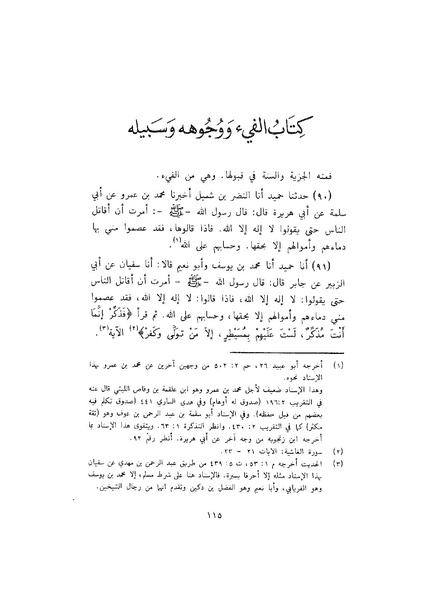 كِتَابُ الفيء وَوُجُوهه وَسَبيله
فمنه الجزية والسنة في قبولها. وهي من الفيء.
(٩٠) حدثنا حميد أنا النضر بن شميل أخبرنا محمد بن عمرو عن أبي
سلمة عن أبي هريرة قال: قال رسول الله -ﷺ-: أمرت أن أقاتل
الناس حتى يقولوا لا إله إلا الله. فاذا قالوها، فقد عصموا مني بها
دماءهم وأموالهم إلا بحقها. وحسابهم على الله(١).
(٩١) أنا حميد أنا محمد بن يوسف وأبو نعيم قالا: أنا سفيان عن أبي
الزبير عن جابر قال: قال رسول الله -ﷺ- أمرت أن أقاتل الناس
حتى يقولوا: لا إله إلا الله، فاذا قالوا: لا إله إلا الله، فقد عصموا
مني دماءهم وأموالهم إلا بحقها، وحسابهم على الله. ثم قرأ ﴿فَذَكِّرْ إنَّمَا
أَنْتَ مُذَكِّرٌ، لَسْتَ عَلَيْهِمْ بِمُسَيْطِرٍ، إلاَّ مَنْ تَوَلَّى وَكَفَرَ﴾(٢) الآية(٣).
(١) أخرجه أبو عبيد ٢٦، حم ٢: ٥٠٢ من وجهين آخرين عن محمد بن عمرو بهذا
الإسناد نحوه.
وهذا الإسناد ضعيف لأجل محمد بن عمرو وهو ابن علقمة بن وقاص الليثي قال عنه
في التقريب ٢: ١٩٦ (صدوق له أوهام) وفي هدى الساري ٤٤١ (صدوق تكلم فيه
بعضهم من قبل حفظه). وفي الإسناد أبو سلمة بن عبد الرحمن بن عوف وهو (ثقة
مكثر) كما في التقريب ٢: ٤٣٠. وانظر التذكرة ١: ٦٣. ويتقوى هذا الإسناد بما
أخرجه ابن زنجويه من وجه آخر عن أبي هريرة. أنظر رقم ٩٢.
(٢) سورة الغاشية: الآيات ٢١ - ٢٣.
(٣) الحديث أخرجه م ١: ٥٣، ت ٥: ٤٣٩ من طريق عبد الرحمن بن مهدي عن سفيان
بهذا الإسناد مثله إلا أحرفا يسيرة. فالإسناد هنا على شرط مسلم، إلا محمد بن يوسف
وهو الفريابي، وأبا نعيم وهو الفضل بن دكين وتقدم أنهما من رجال الشيخين.
١١٥